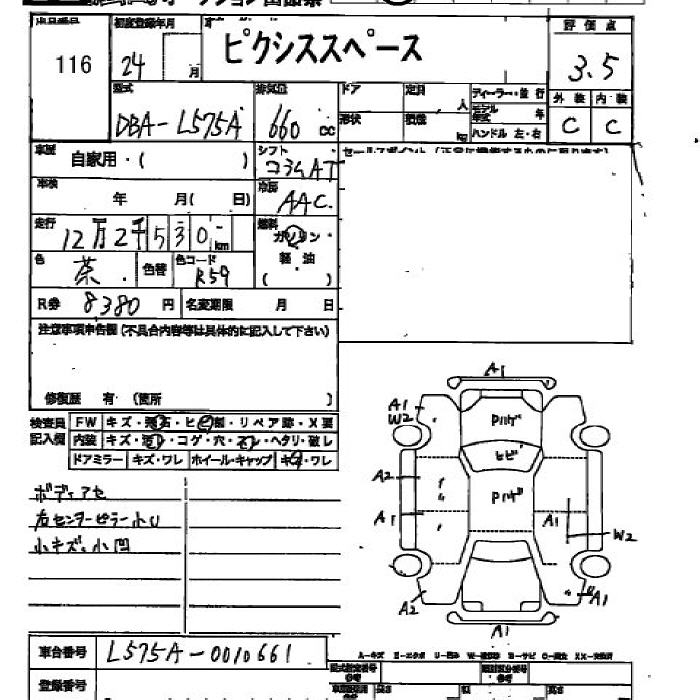 出品番号 初度登録年月 評価点
116 24 月 ピクシススペース 3.5
型式 排気量 ドア 定員 人 ディーラー・並行 外装 内装
DBA-L575A 660 cc 形状 積載 kg モデル年式 年 C C
ハンドル 左・右
車歴 自家用・( ) シフト コラムAT
車検 年 月( 日) 冷房 AAC
走行 12万2千530km 燃料 ガソリン・軽油 ( )
色 茶 色替 色コード R59
R券 8380 円 名変期限 月 日
注意事項申告欄(不具合内容等は具体的に記入して下さい)
修復歴 有 (箇所 )
検査員記入欄 FW キズ・飛石・ヒビ割・リペア跡・X要
内装 キズ・汚レ・コゲ・穴・スレ・ヘタリ・破レ
ドアミラー キズ・ワレ ホイール・キャップ キズ・ワレ
ボディアセ
右センターピラー小U
小キズ、小凹
A1
A1
W2
Pハゲ
ヒビ
A2
Pハゲ
A1
A1
W2
A2
A1
A1
車台番号 L575A-0010661
登録番号